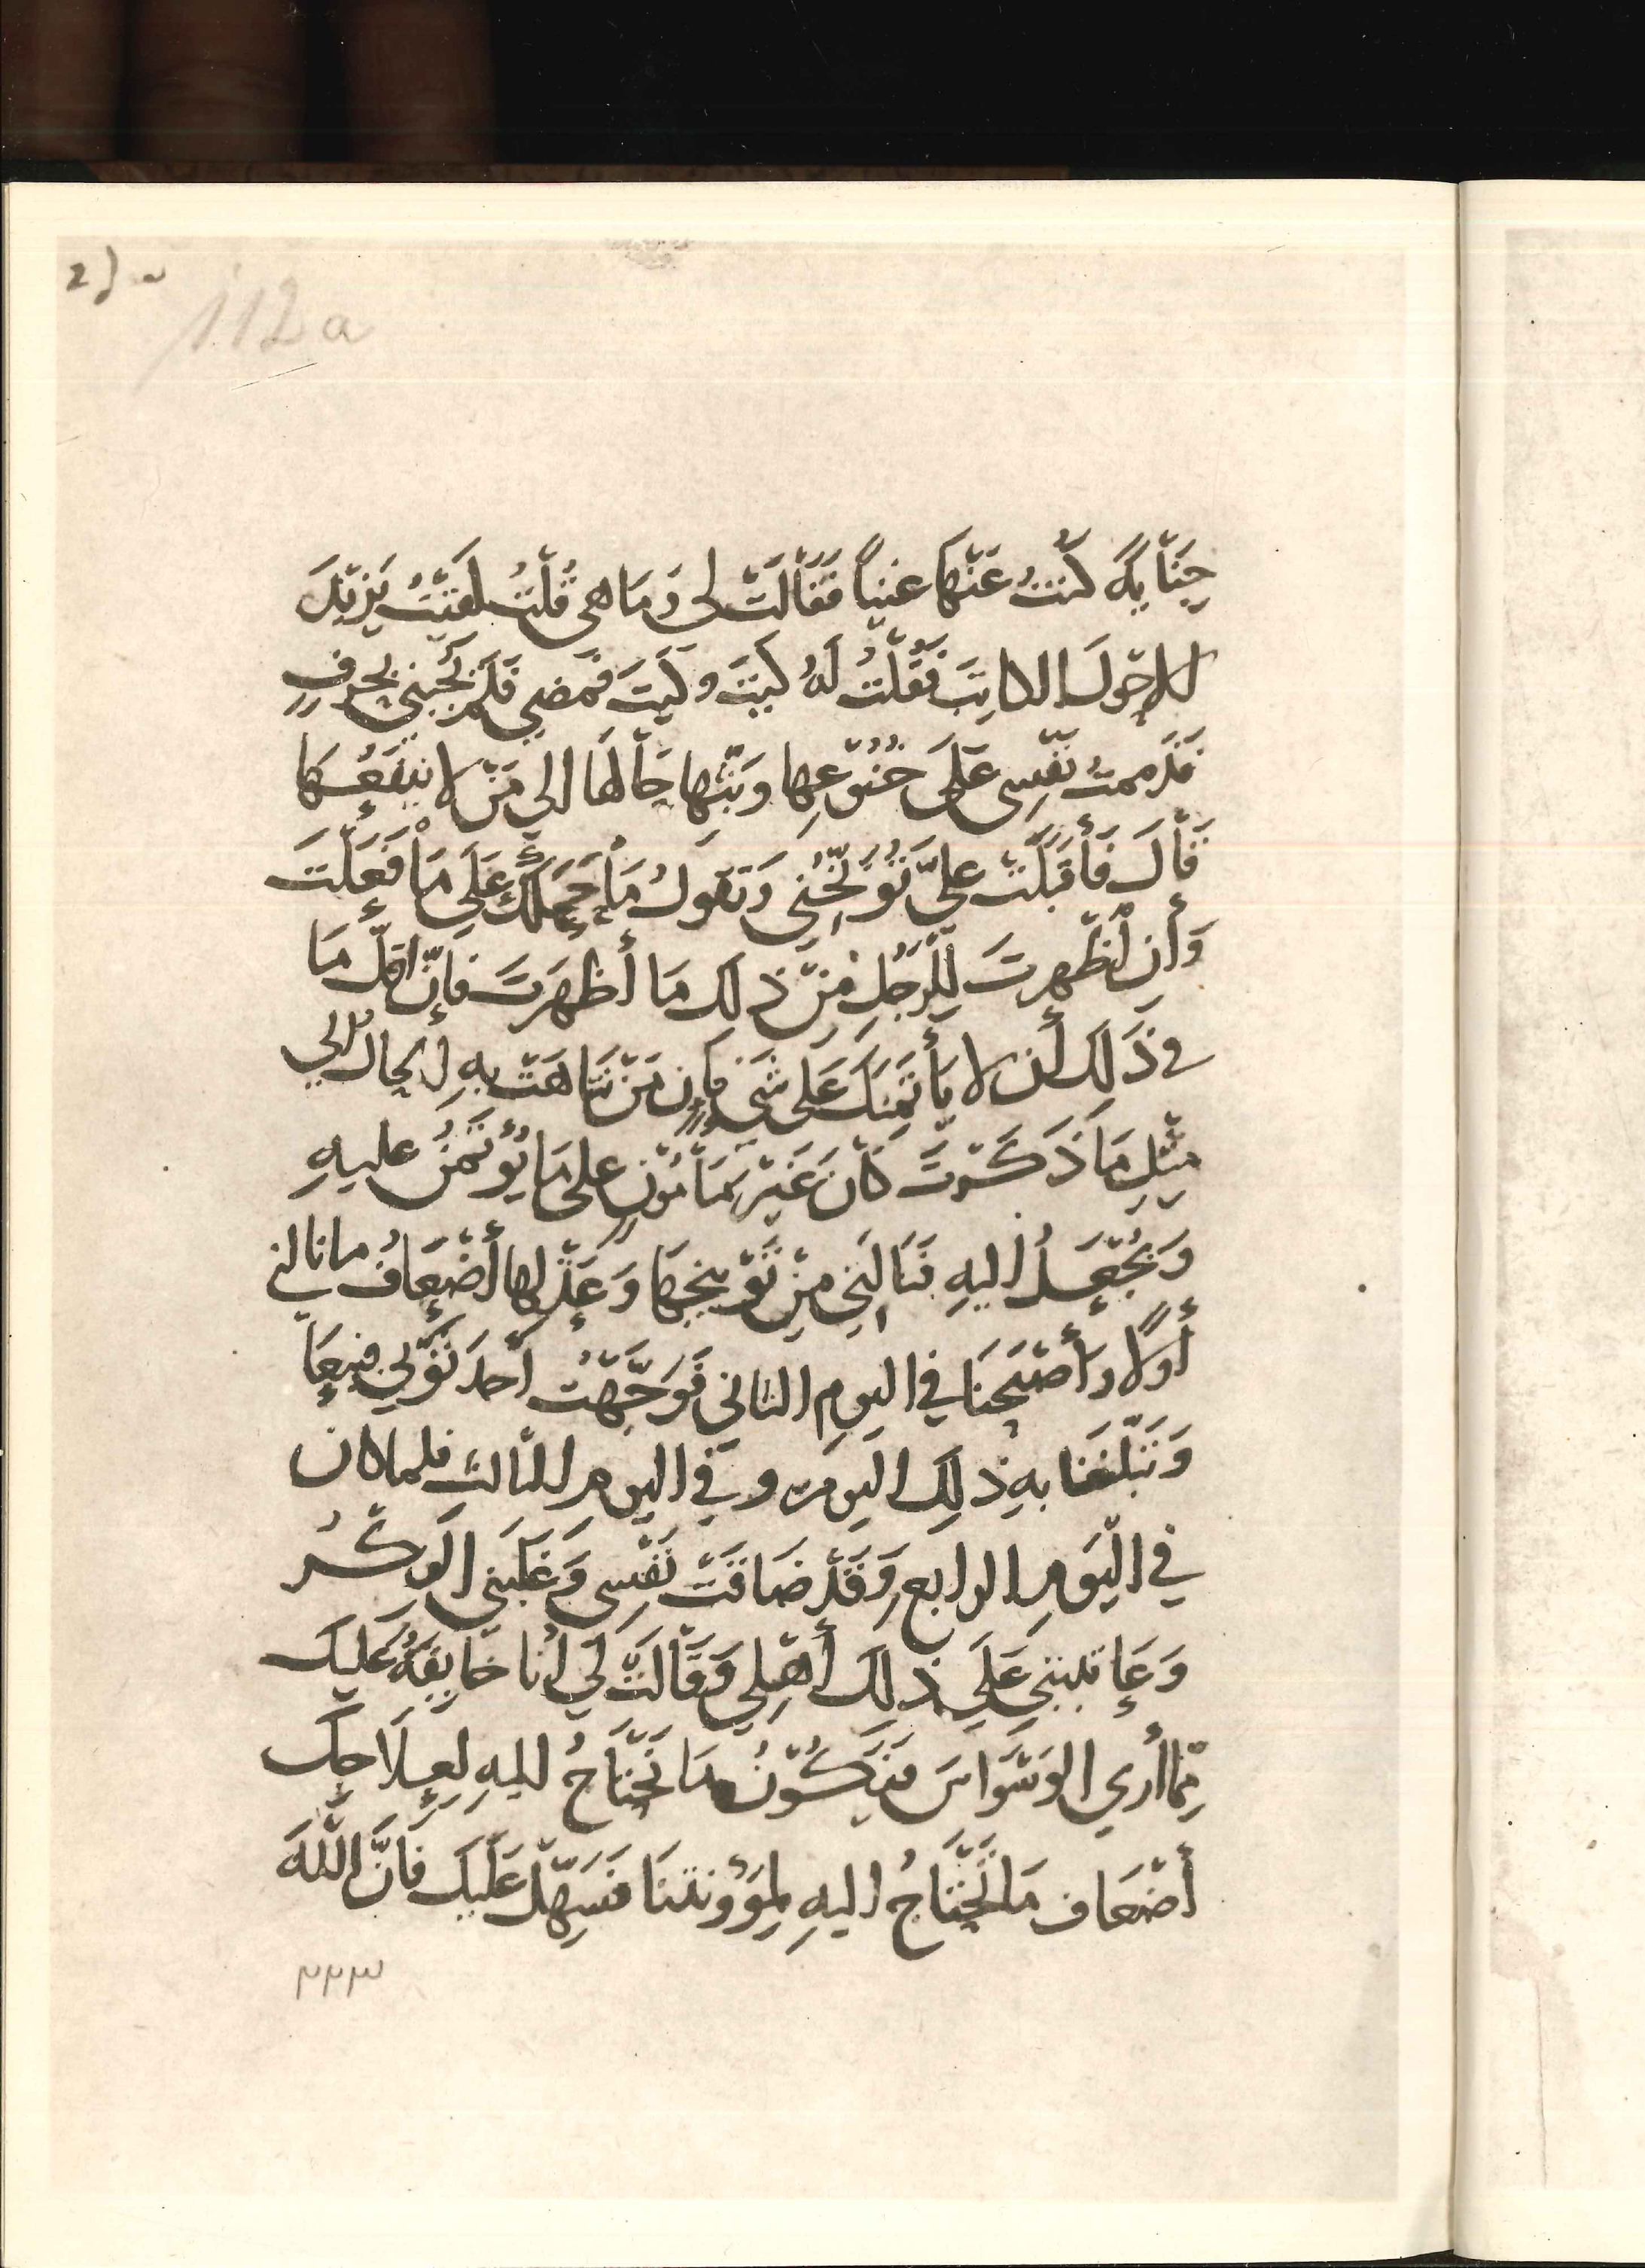 112a
جِنَايةً كنتُ عَنْهَا غنياً فَقَالَتْ لى وَمَا هى قُلْتُ لَقيْتُ يَزيْدَ
الاحوَل الكاتِبَ فَقُلْتُ لَهُ كَيْتَ وكَيْتَ فمَضي فَلَم يُجبْني بحَرفٍ
فذممتُ نَفْسِى عَلَى خُنُوْعِهَا وبَثّها حَالَها الى مَنْ لا يَنفَعُهَا
قَالَ فَأَقبَلَتْ علىَّ تُوَبّخُنى وَتقولُ مَا حَمَلَكَ عَلَى مَا فَعَلْتَ
وَأن أظْهرتَ لِلرّجُلِ مِنْ ذلك مَا أظهَرتَ فَإنّ اقلّ مَا
فى ذَلِكَ أن لا يأتمِنَكَ عَلى شَىءٍ فإن مَنْ تنَاهَتْ بهِ الحالُ الي
مِثْلِ مَا ذَكَرْتَ كَانَ غَيْرَ مَأمُوْنٍ على مَا يُؤتَمَنُ عليهِ
وَيُجْعَلُ اليهِ فنَالَنِى مِنْ تَوْبيخهَا وَعَذْلِها أضْعَافُ ما نالنى
أولاً وأصْبَحنَا في اليومِ الثاني فَوَجَّهْتُ أحَدَ ثَوْبَيّ فبيعَ
وَتَبَلّغنَا بهِ ذلِكَ اليومَ و في اليومِ الثالث فلما كان
في اليَومِ الرابع وَقَدْ ضَاقَتْ نَفْسِى وَغَلَبَني الفِكْرُ
وَعَاتبتنى عَلَى ذلِكَ أَهْلِي وَقَالَتْ لي أنا خَايفَةٌ عَلَيك
مِمّا أرى الوَسْوَاسَ فيَكُوْنُ مَا نَحْتَاجُ اليهِ لِعِلَاجِكَ
أضْعَاف مَا نَحْتَاجُ اليهِ لِمؤُونتنَا فسَهِّلْ عَلَيكَ فَانَّ اللهَ
٢٢٣